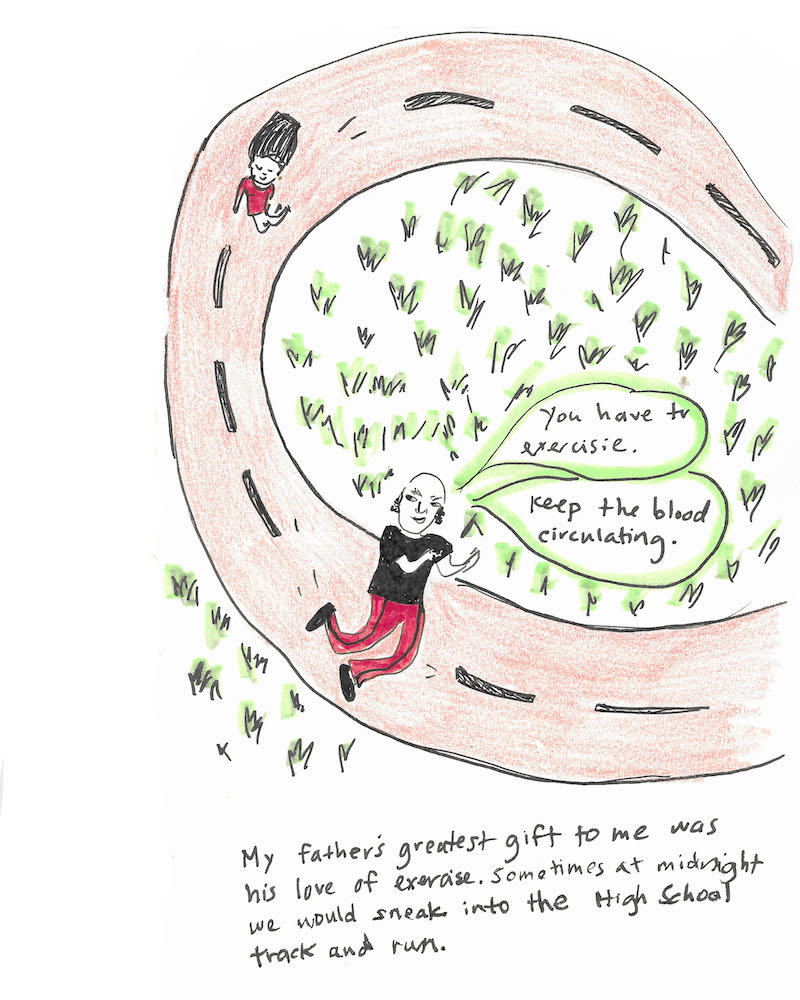 You have to
exercisie.
Keep the blood
circulating.
My father's greatest gift to me was
his love of exercise. Sometimes at midnight
we would sneak into the High School
track and run.